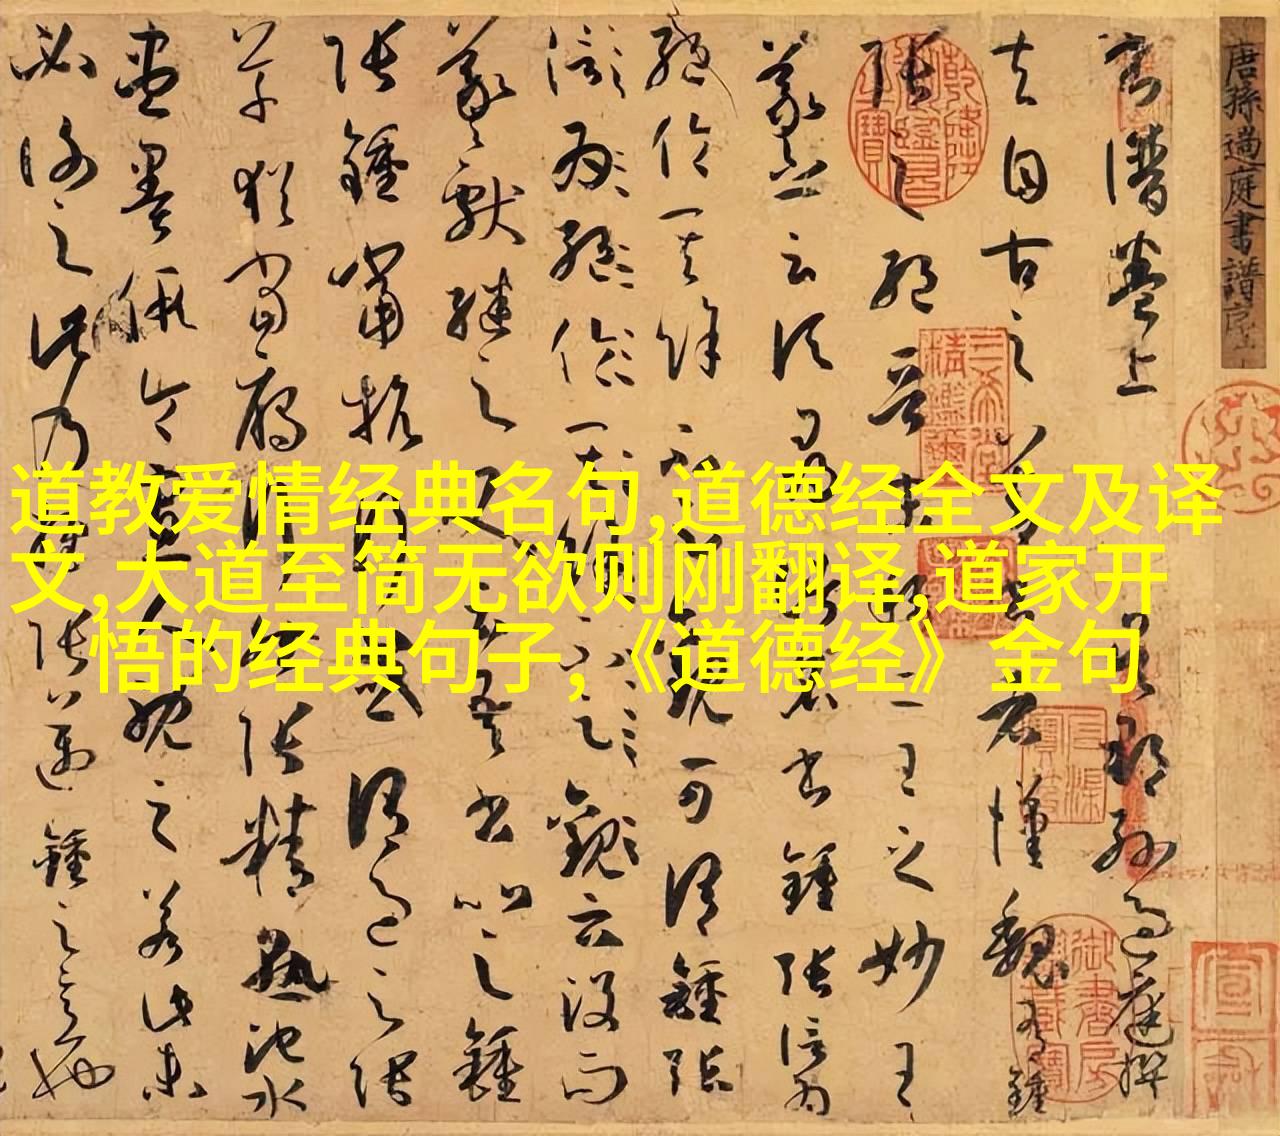 道教爱情经典名句,道德经全文及译
文,大道至简无欲则刚翻译,道家开
悟的经典句子,《道德经》金句
唐孫過庭書譜序
書譜卷上 吳郡孫過庭撰
夫自古之善書者漢魏有鍾
張之絕晉末稱二王之妙王
羲之云頃尋諸名書鍾張信為
絕倫其餘不足觀可謂鍾張
云沒而
羲獻繼之又云吾書比之鍾
張鍾當抗行或謂過之張
草猶當鴈行然張精熟池水
盡墨假令寡人耽之若此未
必謝之此乃推張邁鍾之意也